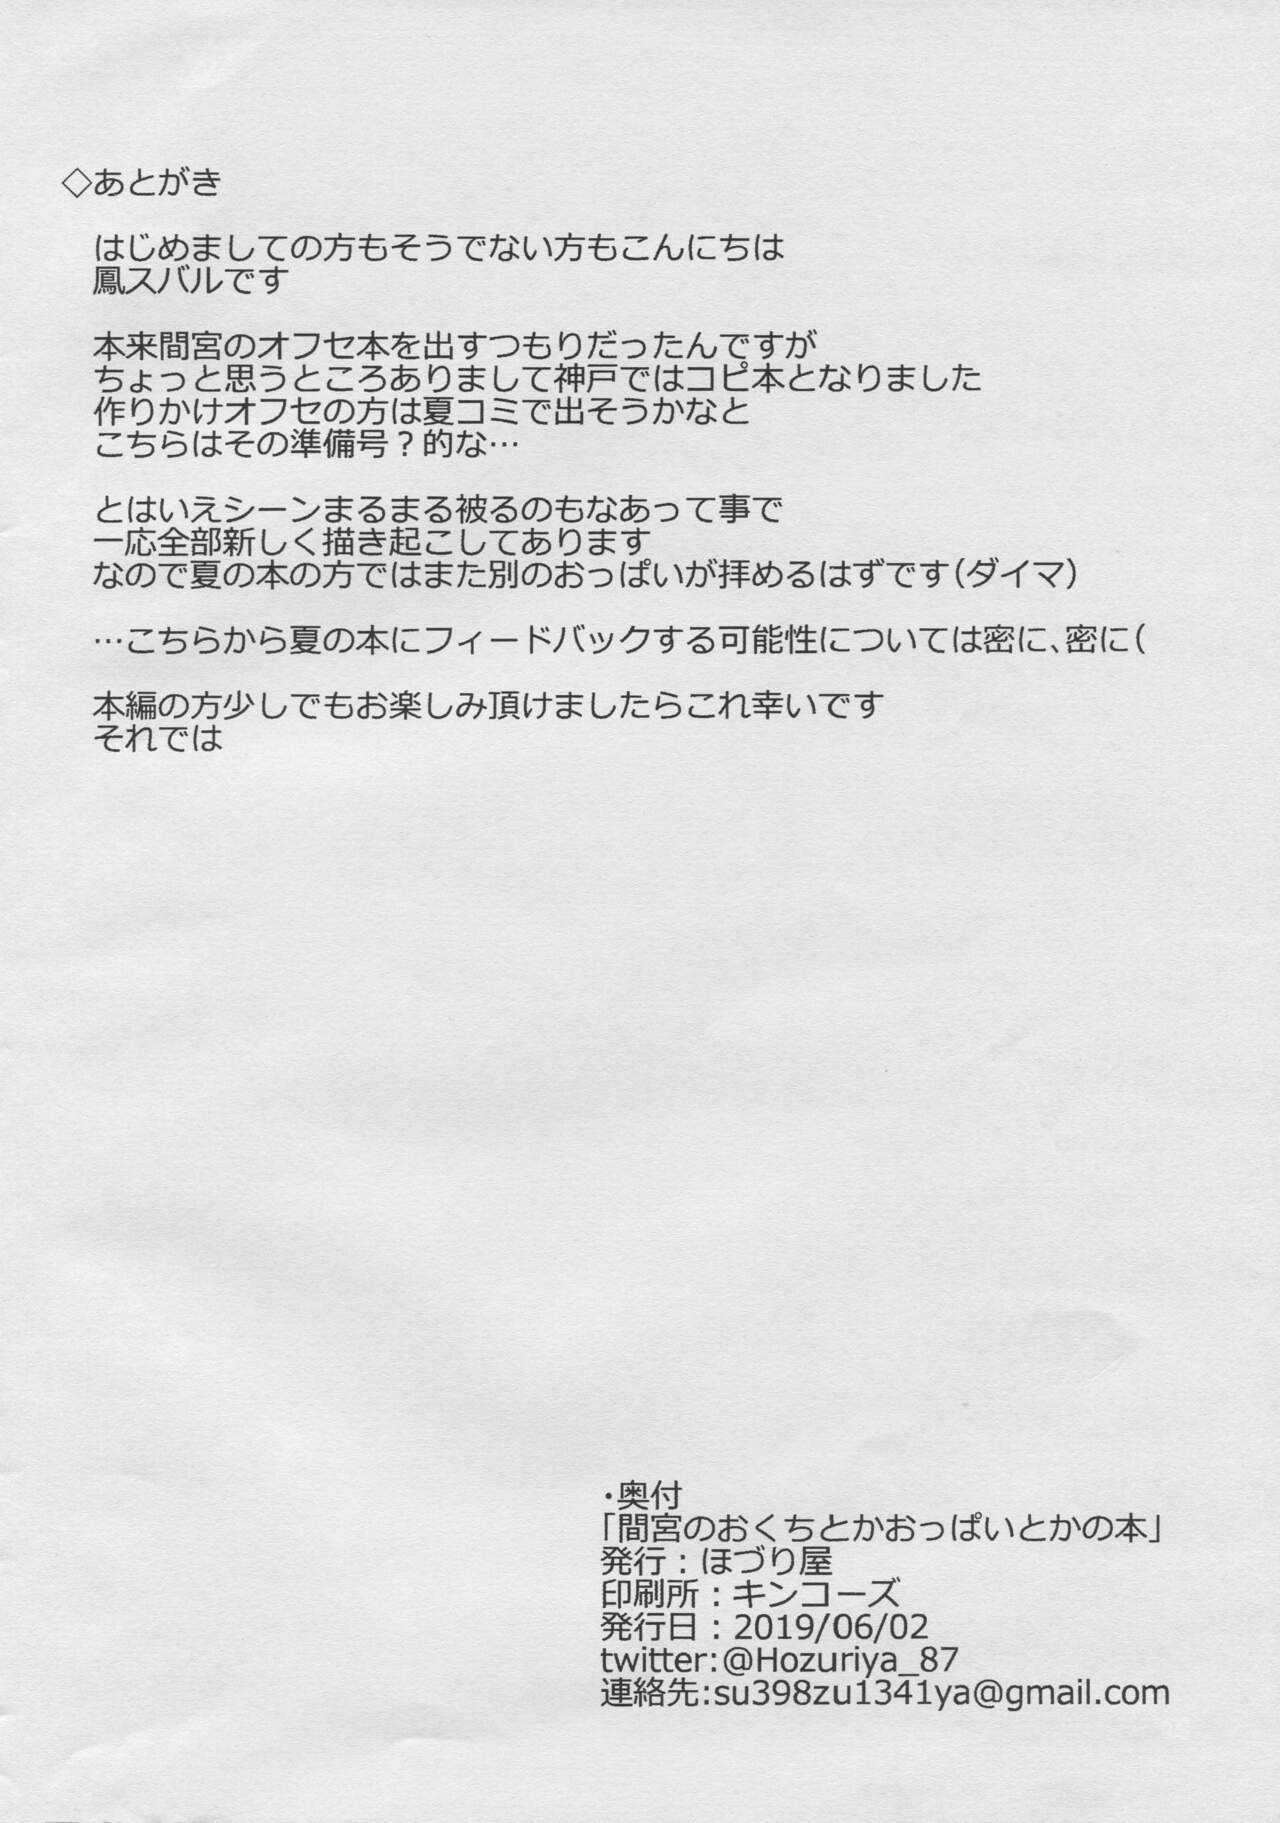 ◇あとがき
はじめましての方もそうでない方もこんにちは
鳳スバルです
本来間宮のオフセ本を出すつもりだったんですが
ちょっと思うところありまして神戸ではコピ本となりました
作りかけオフセの方は夏コミで出そうかなと
こちらはその準備号？的な…
とはいえシーンまるまる被るのもなあって事で
一応全部新しく描き起こしてあります
なので夏の本の方ではまた別のおっぱいが拝めるはずです（ダイマ）
…こちらから夏の本にフィードバックする可能性については密に、密に（
本編の方少しでもお楽しみ頂けましたらこれ幸いです
それでは
・奥付
「間宮のおくちとかおっぱいとかの本」
発行：ほづり屋
印刷所：キンコーズ
発行日：2019/06/02
twitter:@Hozuriya_87
連絡先:su398zu1341ya@gmail.com